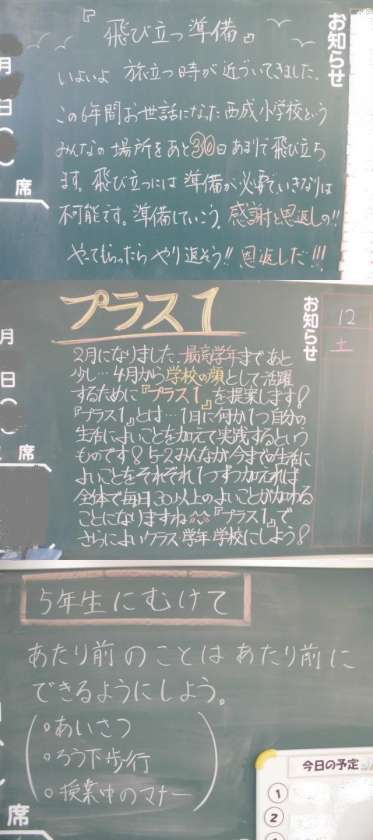 『飛び立つ準備』
お知らせ
月
日
席
いよいよ 旅立つ時が近づいてきました。
この6年間お世話になった西成小学校という
みんなの場所をあと30日あまりで飛び立ち
ます。飛び立つには準備が必要でいきなりは
不可能です。準備していこう。感謝と恩返しの!!
やってもらったら やり返そう!! 恩返しだ!!!
プラス1
お知らせ
12
土
月
日
席
2月になりました。最高学年まであと
少し…4月から学校の顔として活躍
するために『プラス1』を提案します!
『プラス1』とは…1日に何か1つ自分の
生活によいことを加えて実践するという
ものです!5-2みんなが今までの生活に
よいことをそれぞれ1つずつ加えれば
全体で毎日30以上のよいことが加わる
ことになりますね^^『プラス1』で
さらによいクラス 学年 学校にしよう!
5年生にむけて
あたり前のことは あたり前に
できるようにしよう。
。あいさつ
。ろう下歩行
。授業中のマナー
席
今日の予定
1
2